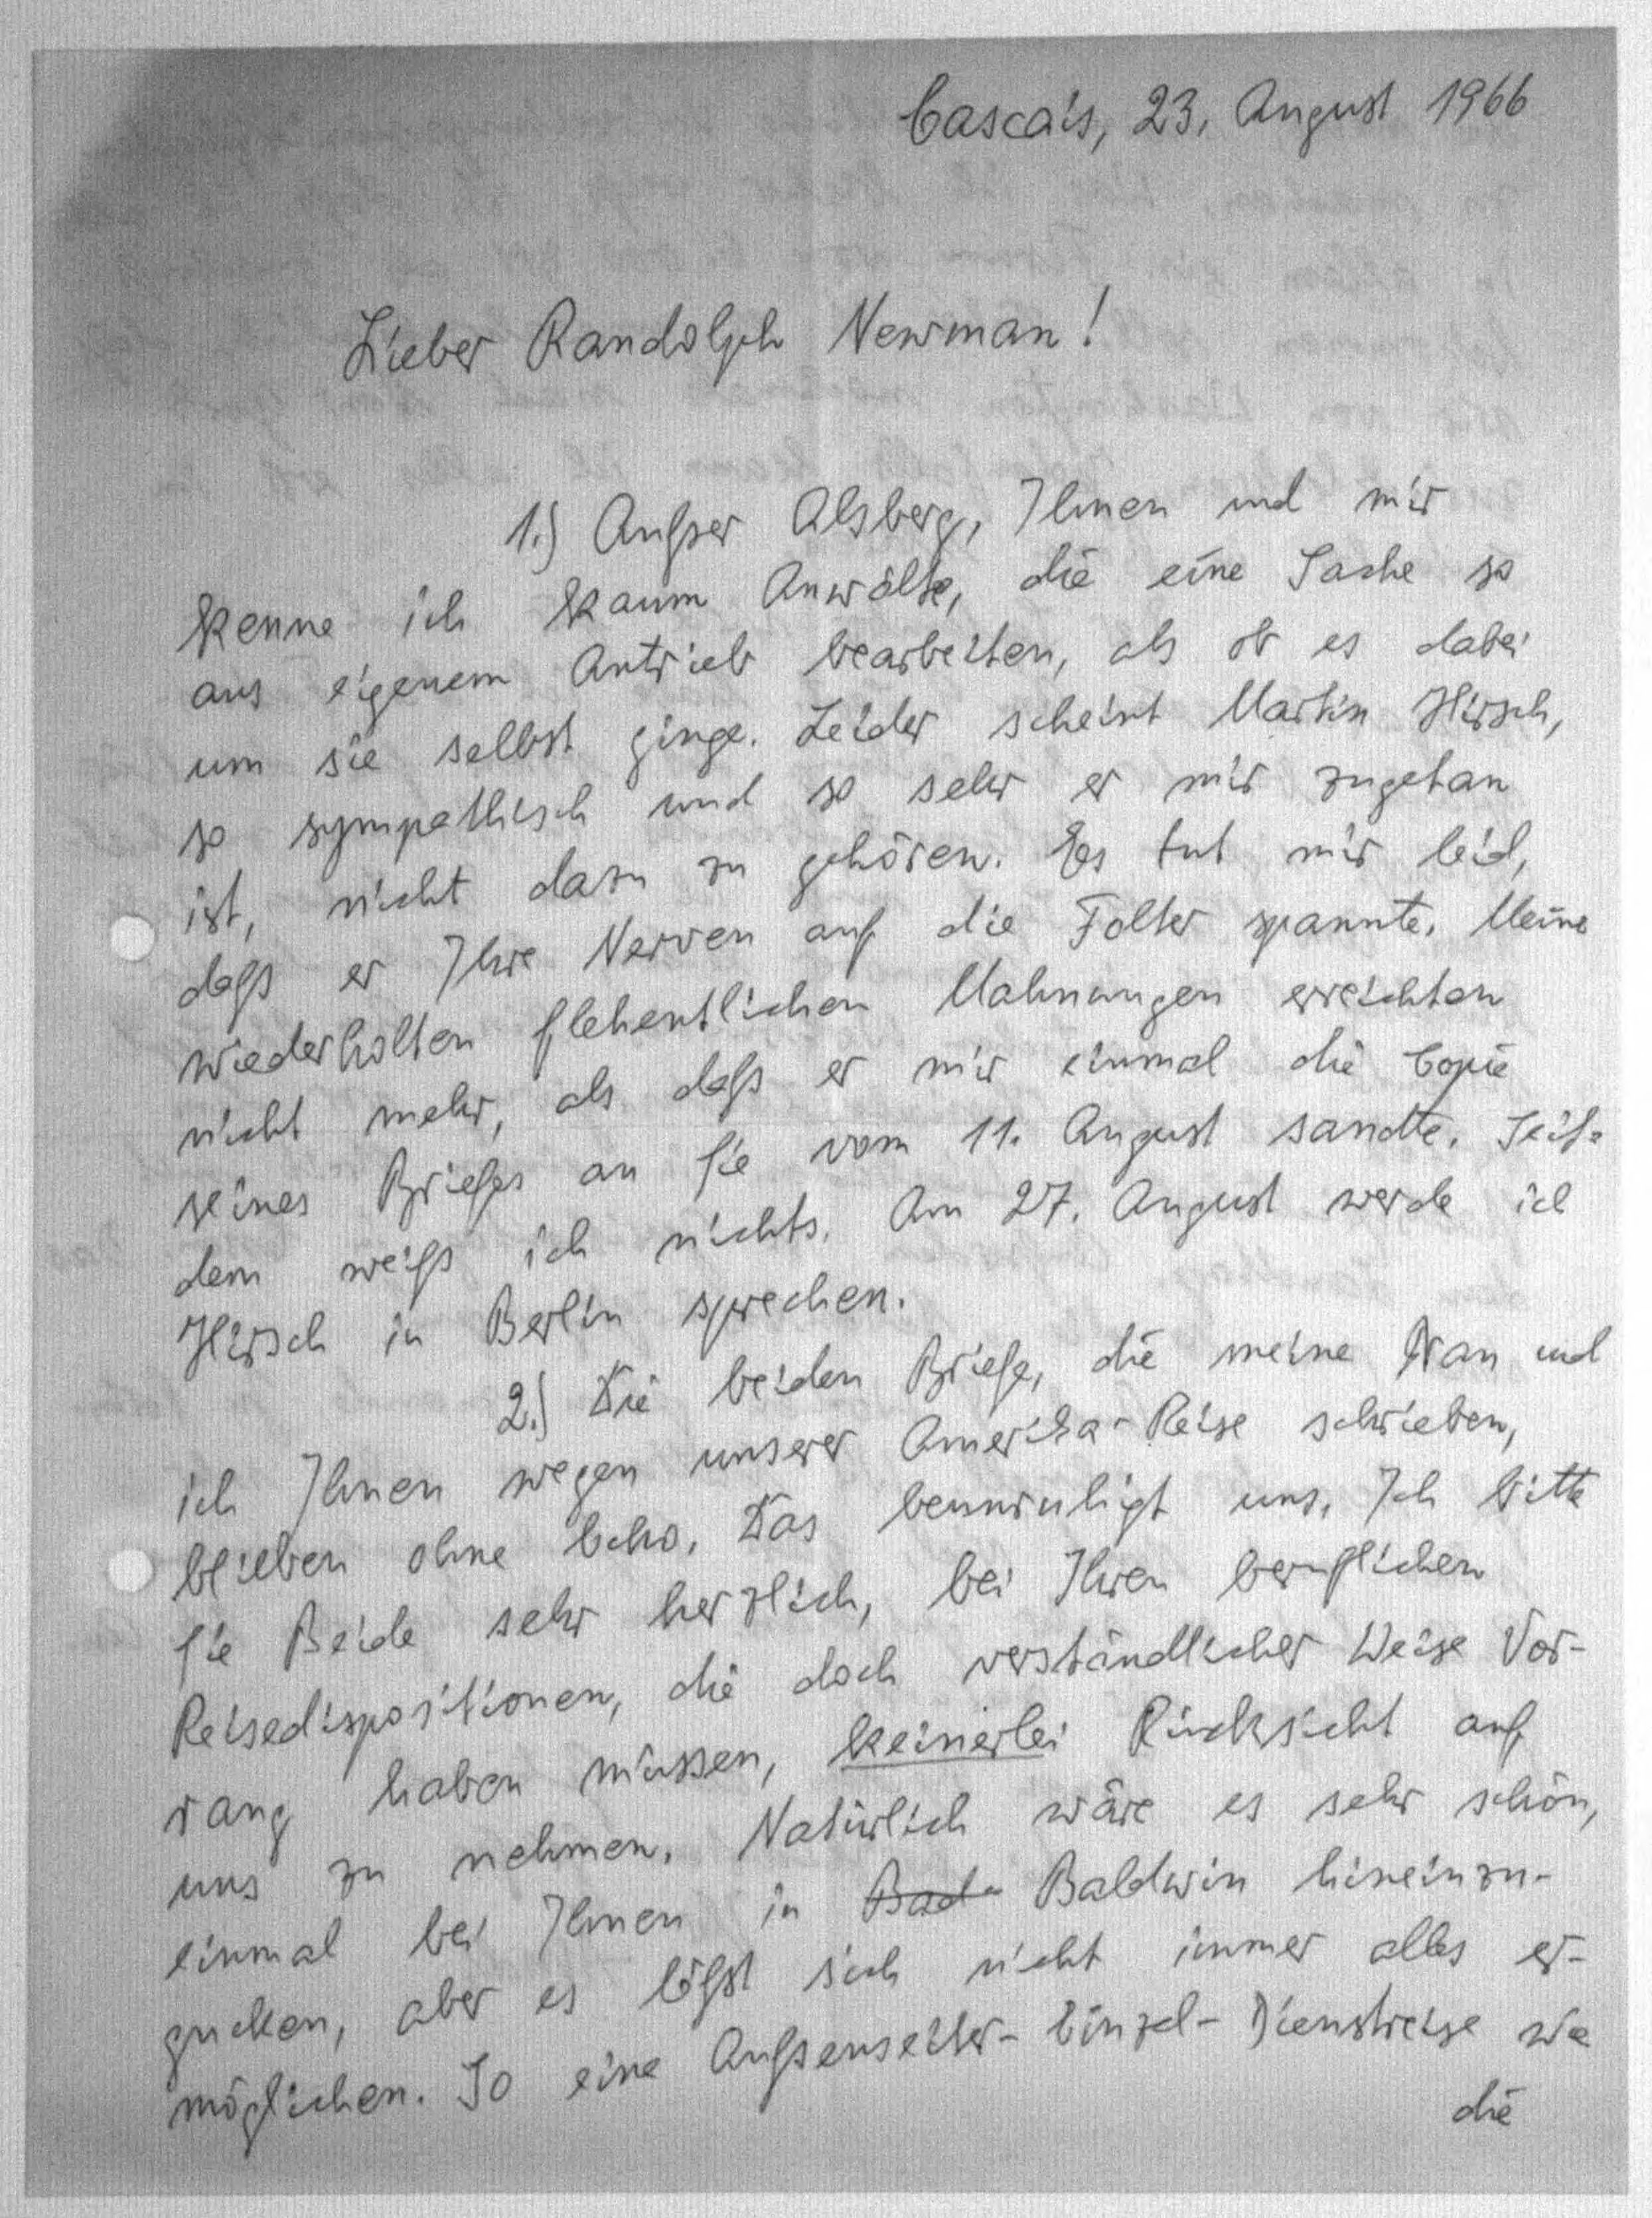 Cascais, 23. August 1966
Lieber Randolph Newman!
1.) Außer Alsberg, Ihnen und mir
kenne ich kaum Anwälte, die eine Sache so
aus eigenem Antrieb bearbeiten, als ob es dabei
um sie selbst ginge. Leider scheint Martin Hirsch,
so sympathisch und so sehr er mir zugetan
ist, nicht dazu zu gehören. Es tut mir leid,
daß er Ihre Nerven auf die Folter spannte. Meine
wiederholten flehentlichen Mahnungen erreichten
nicht mehr, als daß er mir einmal die Copie
seines Briefes an Sie vom 11. August sandte. Seit-
dem weiß ich nichts. Am 27. August werde ich
Hirsch in Berlin sprechen.
2.) Die beiden Briefe, die meine Frau und
ich Ihnen wegen unserer Amerika-Reise schrieben,
blieben ohne Echo. Das beunruhigt uns. Ich bitte
Sie Beide sehr herzlich, bei Ihren beruflichen
Reisedispositionen, die doch verständlicher Weise Vor-
rang haben müssen, keinerlei Rücksicht auf
uns zu nehmen. Natürlich wäre es sehr schön,
einmal bei Ihnen in Bad- Baldwin hineinzu-
gucken, aber es läßt sich nicht immer alles er-
möglichen. So eine Außenseiter-Einzel-Dienstreise wie
die